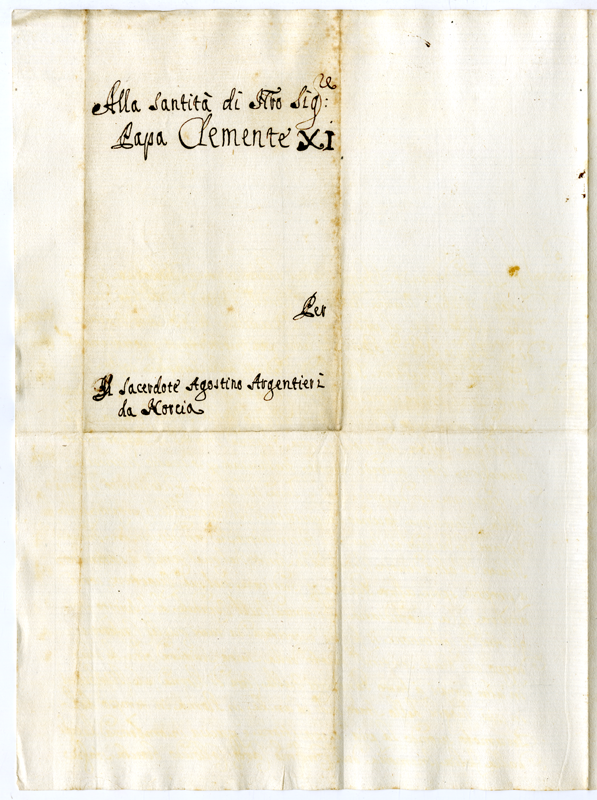 Alla Santità di Nro Sig:re
Papa Clemente XI
Per
Il Sacerdote Agostino Argentieri
da Norcia